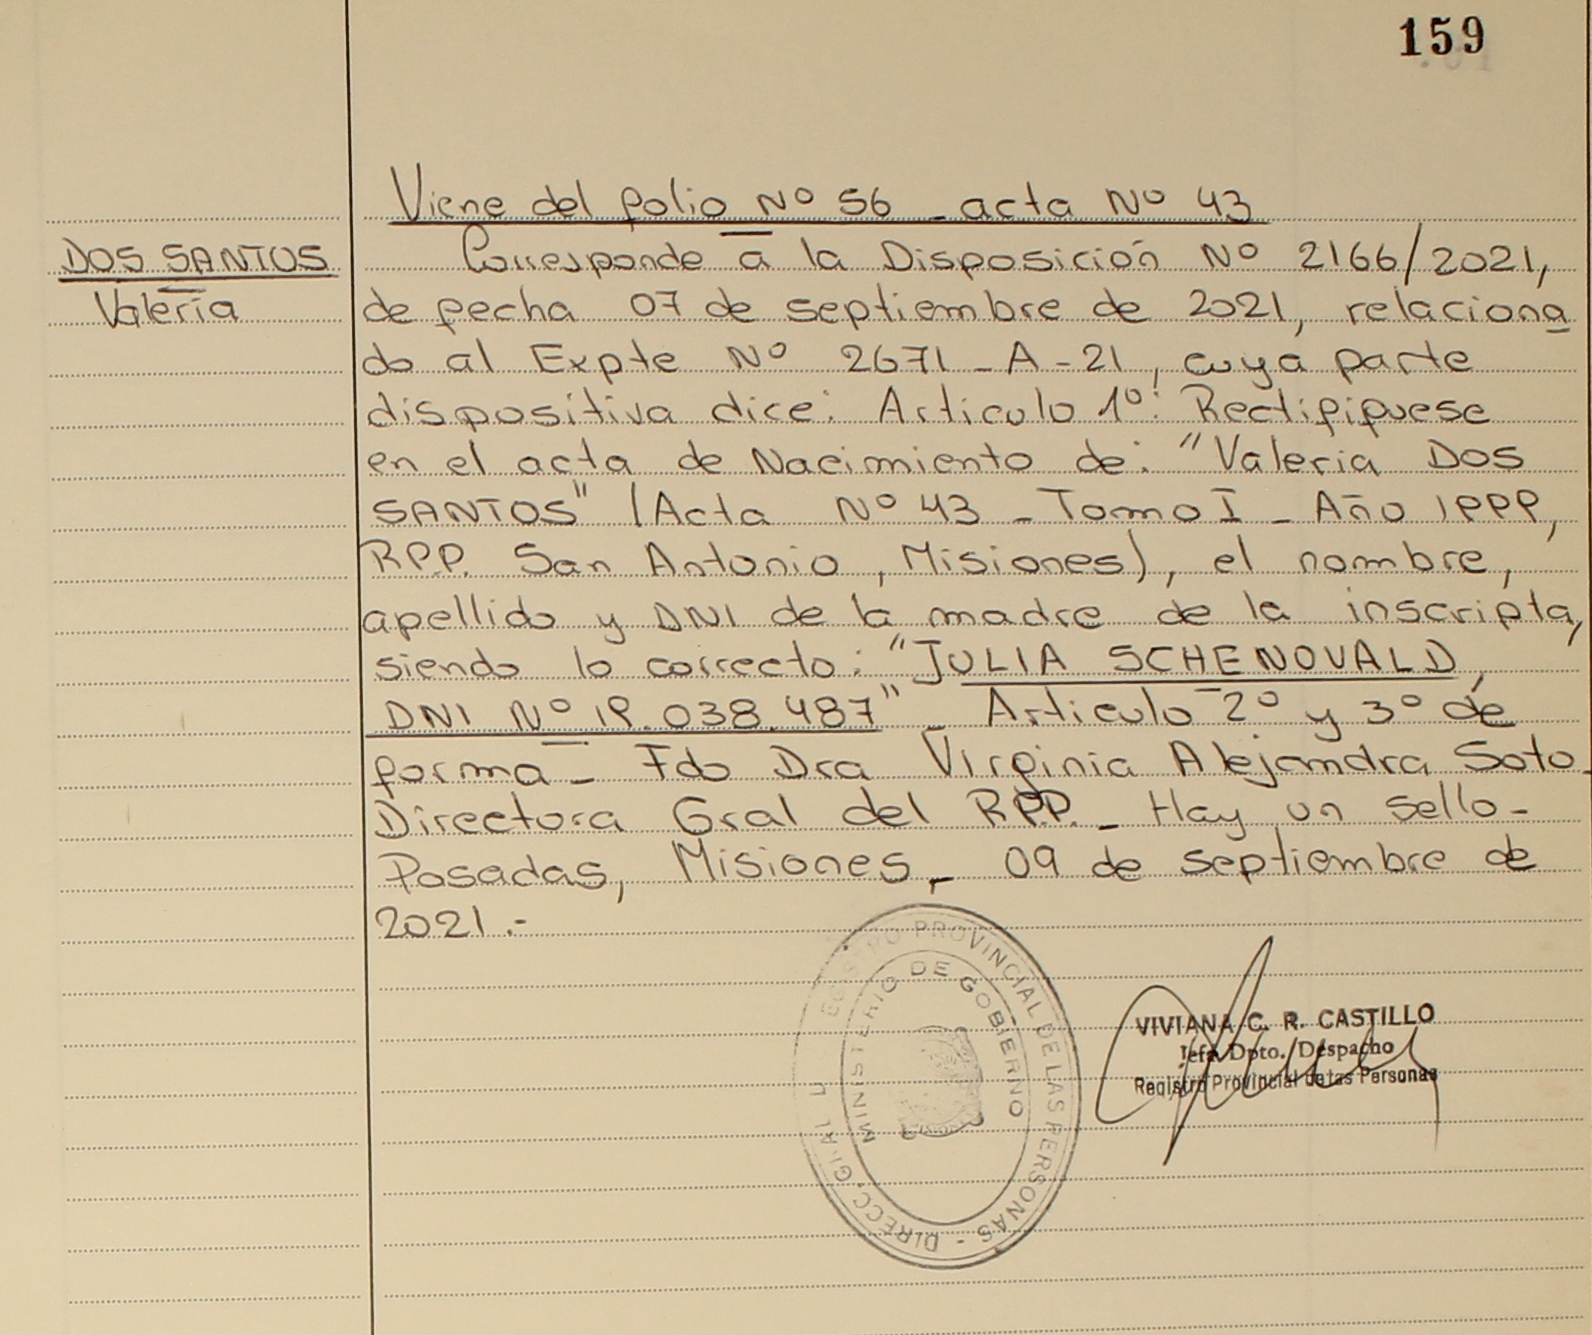 159
Viene del folio Nº 56 - acta Nº 43
DOS SANTOS
Valeria
Corresponde a la Disposición Nº 2166/2021,
de fecha 07 de septiembre de 2021, relaciona
do al Expte Nº 2671 - A - 21, cuya parte
dispositiva dice: Articulo 1º: Rectifiquese
en el acta de Nacimiento de: "Valeria DOS
SANTOS" (Acta Nº 43 - Tomo I - Año 1999,
R.P.P. San Antonio, Misiones), el nombre,
apellido y DNI de la madre de la inscripta,
siendo lo correcto: "JULIA SCHENOVALD,
DNI Nº 19.038.487" - Articulo 2º y 3º de
forma - Fdo Dra Virginia Alejandra Soto -
Directora Gral del R.P.P. - Hay un sello -
Posadas, Misiones, - 09 de septiembre de
2021.-
PROVINCIAL DE LAS PERSONAS - DIRECC. GRAL
MINISTERIO DE GOBIERNO
VIVIANA C. R. CASTILLO
Jefa Dpto. Despacho
Registro Provincial de las Personas